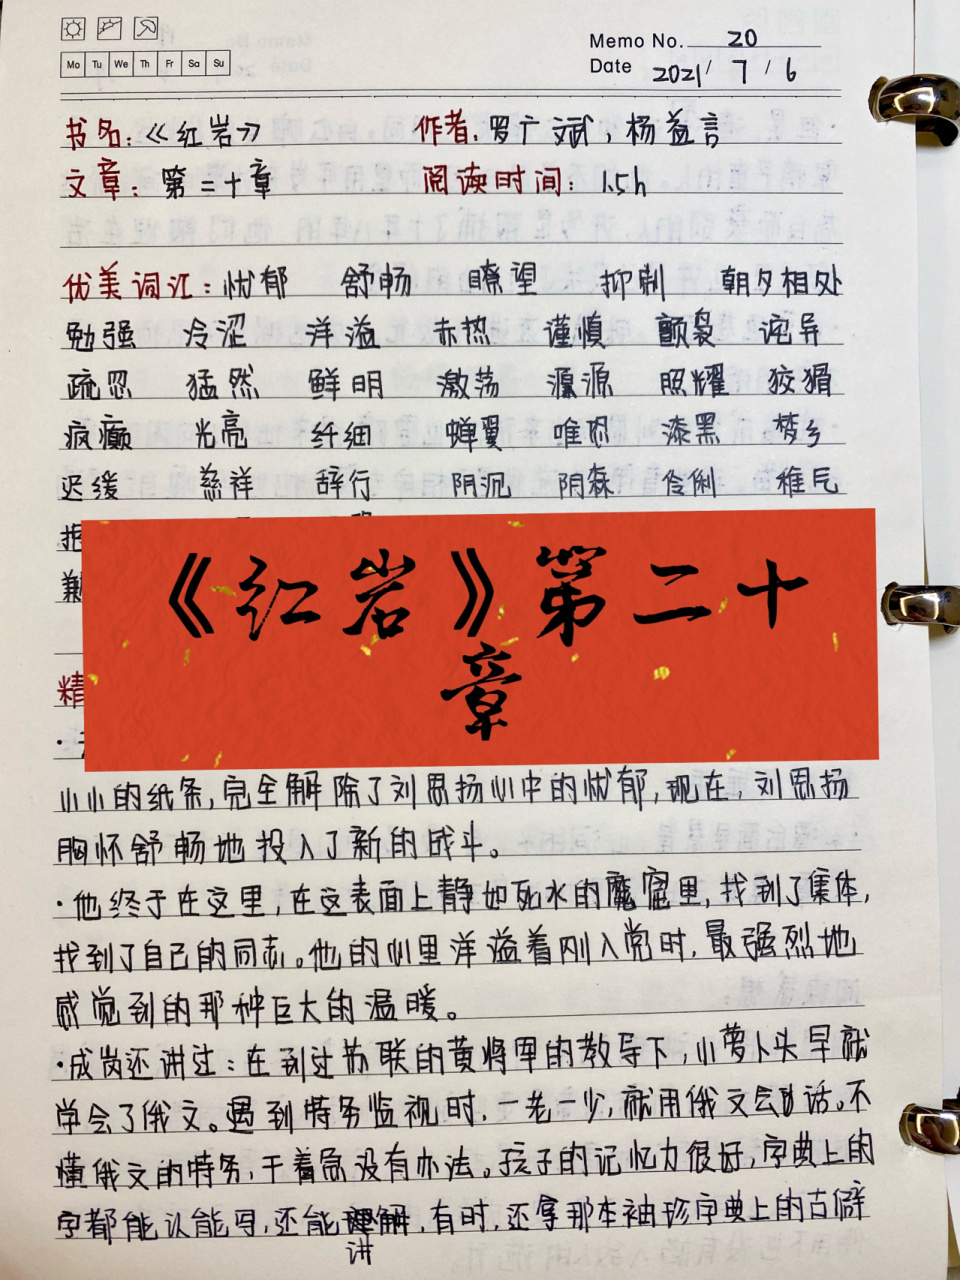 Memo No. 20
Mo Tu We Th Fr Sa Su
Date 2021 / 7 / 6
书名：《红岩》 作者：罗广斌，杨益言
文章：第二十章 阅读时间：1.5h
优美词汇：忧郁 舒畅 瞭望 抑制 朝夕相处
勉强 冷涩 洋溢 赤热 谨慎 颤袅 诧异
疏忽 猛然 鲜明 激荡 源 照耀 狡猾
疯癫 光亮 纤细 蝉翼 唯恐 漆黑 梦乡
迟缓 慈祥 辞行 阴沉 阴森 伶俐 稚气
《红岩》第二十
章
精
小小的纸条，完全解除了刘思扬心中的忧郁，现在，刘思扬
胸怀舒畅地投入了新的战斗。
·他终于在这里，在这表面上静如死水的魔窟里，找到了集体，
找到了自己的同志。他的心里洋溢着刚入党时，最强烈地
感觉到的那种巨大的温暖。
·成岗还讲过：在到过苏联的黄将军的教导下，小萝卜头早就
学会了俄文。遇到特务监视时，一老一少，就用俄文会话。不
懂俄文的特务，干着急没有办法。孩子的记忆力很好，字典上的
字都能认能写，还能讲解，有时，还拿那本袖珍字典上的古僻